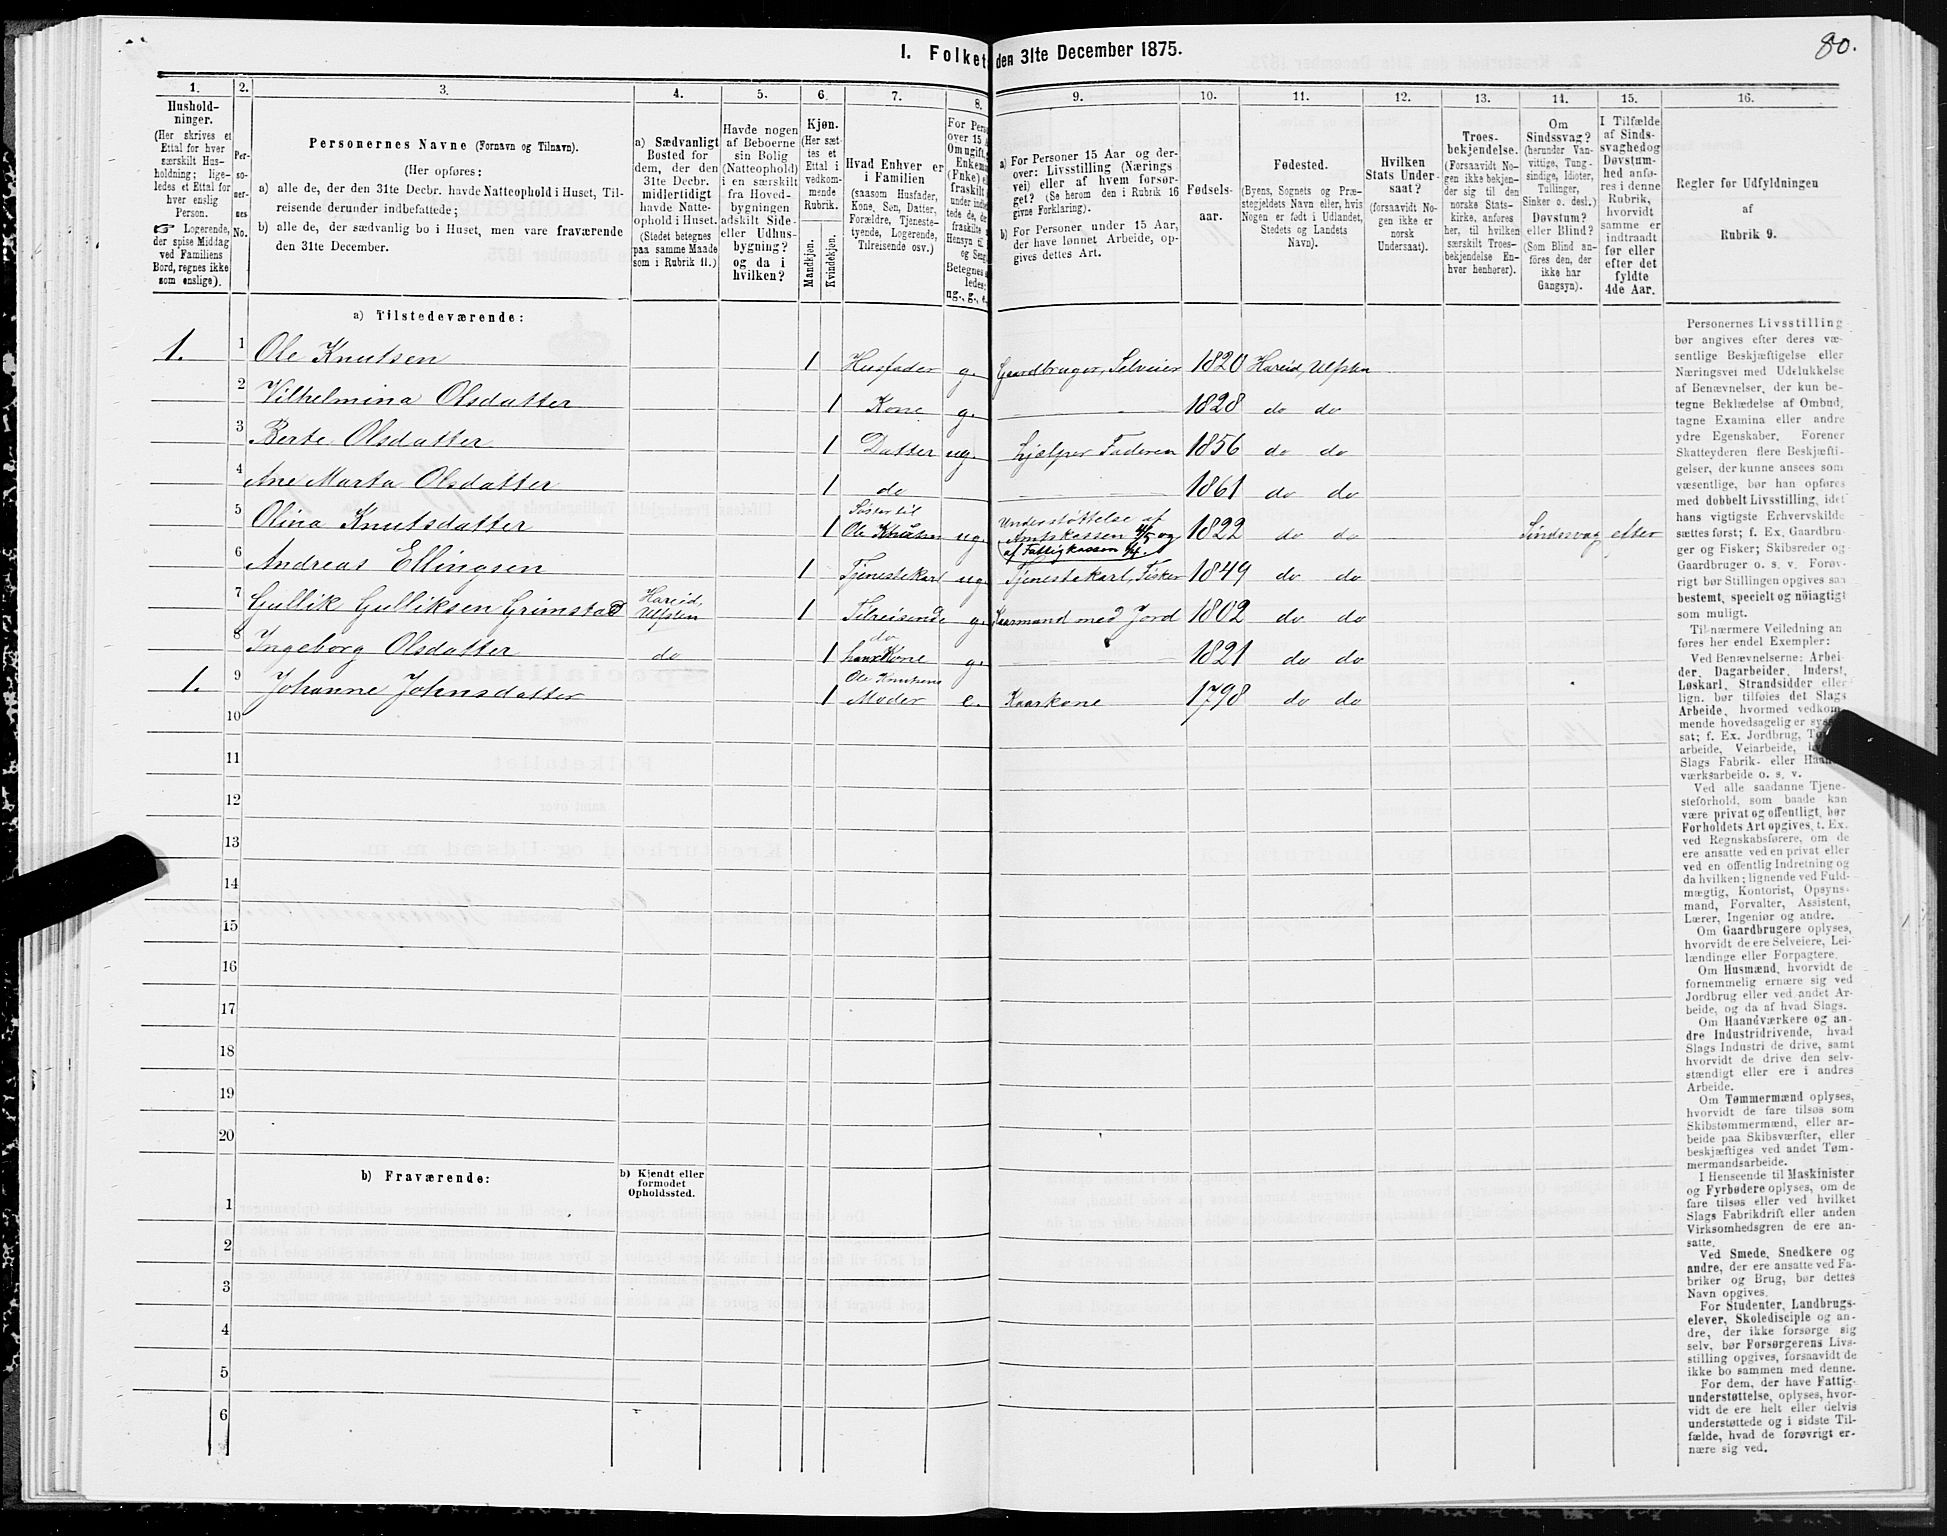 80.
I. Folket den 31te December 1875.
1. 2. 3. 4. 5. 6. 7. 8. 9. 10. 11. 12. 13. 14. 15. 16.
Hushold-
ninger.
(Her skrives et
Ettal for hver
særskilt Hus-
holdning; lige-
ledes et Ettal for
hver enslig
Person.
☞ Logerende,
der spise Middag
ved Familiens
Bord, regnes ikke
som enslige).
Per-
so-
ner-
nes
No.
Personernes Navne (Fornavn og Tilnavn).
(Her opføres:
a) alle de, der den 31te Decbr. havde Natteophold i Huset, Til-
reisende derunder indbefattede;
b) alle de, der sædvanlig bo i Huset, men vare fraværende
den 31te December.
a) Sædvanligt
Bosted for
dem, der den
31te Decbr.
midlertidigt
havde Natte-
ophold i Huset.
(Stedet betegnes
paa samme Maade
som i Rubrik 11.)
Havde nogen
af Beboerne
sin Bolig
(Natteophold)
i en særskilt
fra Hoved-
bygningen
adskilt Side-
eller Udhus-
bygning?
og da i
hvilken?
Kjøn.
(Her sæt-
tes et
Ettal i
vedkom-
mende
Rubrik.
Mandkjøn.
Kvindekjøn.
Hvad Enhver er
i Familien
(saasom Husfader,
Kone, Søn, Datter,
Forældre, Tjeneste-
tyende, Logerende,
Tilreisende osv.)
For Pers
over 15 A
Om ugift,
Enkema
(Enke)
fraskilt
under indb
tede de, d
fraskilte
Hensyn til
og Seng
Betegnes
ledes:
ug., g., e.
a) For Personer 15 Aar og der-
over: Livsstilling (Nærings
vei) eller af hvem forsør-
get? (Se herom den i Rubrik 16
givne Forklaring).
b) For Personer under 15 Aar,
der have lønnet Arbeide, op-
gives dettes Art.
Fødsels-
aar.
Fødested.
(Byens, Sognets og Præ-
stegjeldets Navn eller, hvis
Nogen er født i Udlandet,
Stedets og Landets
Navn).
Hvilken
Stats Under-
saat?
(forsaavidt No-
gen ikke er
norsk
Undersaat).
Troes-
bekjendelse.
(Forsaavidt No-
gen ikke bekjen-
der sig til den
norske Stats-
kirke, anføres
her, til hvilken
særskilt Troes-
bekjendelse En-
hver henhører).
Om
Sindssvag?
(herunder Van-
vittige, Tung-
sindige, Idioter,
Tullinger,
Sinker o. desl.)
Døvstum?
eller Blind?
(Som Blind an-
føres den, der
ikke har
Gangsyn).
I Tilfælde
af Sinds-
svaghed og
Døvstum-
hed anfø-
res i denne
Rubrik,
hvorvidt
samme er
indtraadt
før eller
efter det
fyldte
4de Aar.
Regler for Udfyldningen
af
Rubrik 9.
a) Tilstedeværende:
1. 1 Ole Knutsen 1 Husfader g. Gaardbruger, Selveier 1820 Hareid, Ulfsten
2 Vilhelmina Olsdatter 1 Kone g. — 1828 do do
3 Berte Olsdatter 1 Datter ug. hjælper Faderen 1856 do do
4 Ane Marta Olsdatter 1 do — 1861 do do
5 Olina Knutsdatter 1 Søster til Ole Knutsen ug. Understøttelse af Amtskassen 4/5 og af Fattigkassen 1822 do do Sindssvag efter
6 Andreas Ellingsen 1 Tjenestekarl ug. Tjenestekarl, Fisker 1849 do do
7 Gullik Gulliksen Grimstad Hareid, Ulfsten 1 Tilreisende g. Kaarmand med Jord 1802 do do
8 Ingeborg Olsdatter do 1 do hans Kone g. — 1821 do do
1. 9 Johanne Johnsdatter 1 Ole Knutsens Moder e. Kaarkone 1798 do do
10
11
12
13
14
15
16
17
18
19
20
b) Fraværende:
b) Kjendt eller
formodet
Opholdssted.
1
2
3
4
5
6
Personernes Livsstilling
bør angives efter deres væ-
sentlige Beskjæftigelse eller
Næringsvei med Udelukkelse
af Benævnelser, der kun be-
tegne Beklædelse af Ombud,
tagne Examina eller andre
ydre Egenskaber. Forener
Skatteyderen flere Beskjæfti-
gelser, der kunne ansees som
væsentlige, bør han opføres
med dobbelt Livsstilling, idet
hans vigtigste Erhvervskilde
sættes først; f. Ex. Gaardbru-
ger og Fisker; Skibsreder og
Gaardbruger o. s. v. Forøv-
rigt bør Stillingen opgives saa
bestemt, specielt og nøiagtigt
som muligt.
Til nærmere Veiledning an
føres her endel Exempler:
Ved Benævnelserne: Arbei-
der, Dagarbeider, Inderst,
Løskarl, Strandsidder eller
lign. bør tilføies det Slags
Arbeide, hvormed vedkom-
mende hovedsagelig er syssel-
sat; f. Ex. Jordbrug,
arbeide, Veiarbeide,
Slags Fabrik- eller Haand-
værksarbeide o. s. v.
Ved alle saadanne Tjene-
steforhold, som baade kan
være privat og offentligt, bør
Forholdets Art opgives, t. Ex.
ved Regnskabsførere, om de
ere ansatte ved en privat eller
ved en offentlig Indretning og
da hvilken; lignende ved Fuld-
mægtig, Kontorist, Opsyns-
mand, Forvalter, Assistent,
Lærer, Ingeniør og andre.
Om Gaardbrugere oplyses,
hvorvidt de ere Selveiere, Lei-
lændinge eller Forpagtere.
Om Husmænd, hvorvidt de
fornemmelig ernære sig ved
Jordbrug eller ved andet Ar-
beide, og da af hvad Slags.
Om Haandværkere og an-
dre Industridrivende, hvad
Slags Industri de drive, samt
hvorvidt de drive den selv-
stændigt eller ere i andres
Arbeide.
Om Tømmermænd oplyses,
hvorvidt de fare tilsøs som
Skibstømmermænd, eller ar-
beide paa Skibsværfter, eller
beskjæftiges ved andet Tøm-
mermandsarbeide.
I Henseende til Maskinister
og Fyrbødere oplyses, om de
fare tilsøs eller ved hvilket
Slags Fabrikdrift eller anden
Virksomhedsgren de ere an-
satte.
Ved Smede, Snedkere og
andre, der ere ansatte ved Fa-
briker og Brug, bør dettes
Navn opgives.
For Studenter, Landbrugs-
elever, Skoledisciple og an-
dre, der ikke forsørge sig
selv, bør Forsørgerens Livs-
stilling opgives, forsaavidt de
ikke bo sammen med denne.
For dem, der have Fattig-
understøttelse, oplyses, hvor-
vidt de ere helt eller delvis
understøttede og i sidste Til-
fælde, hvad de forøvrigt er-
nære sig ved.